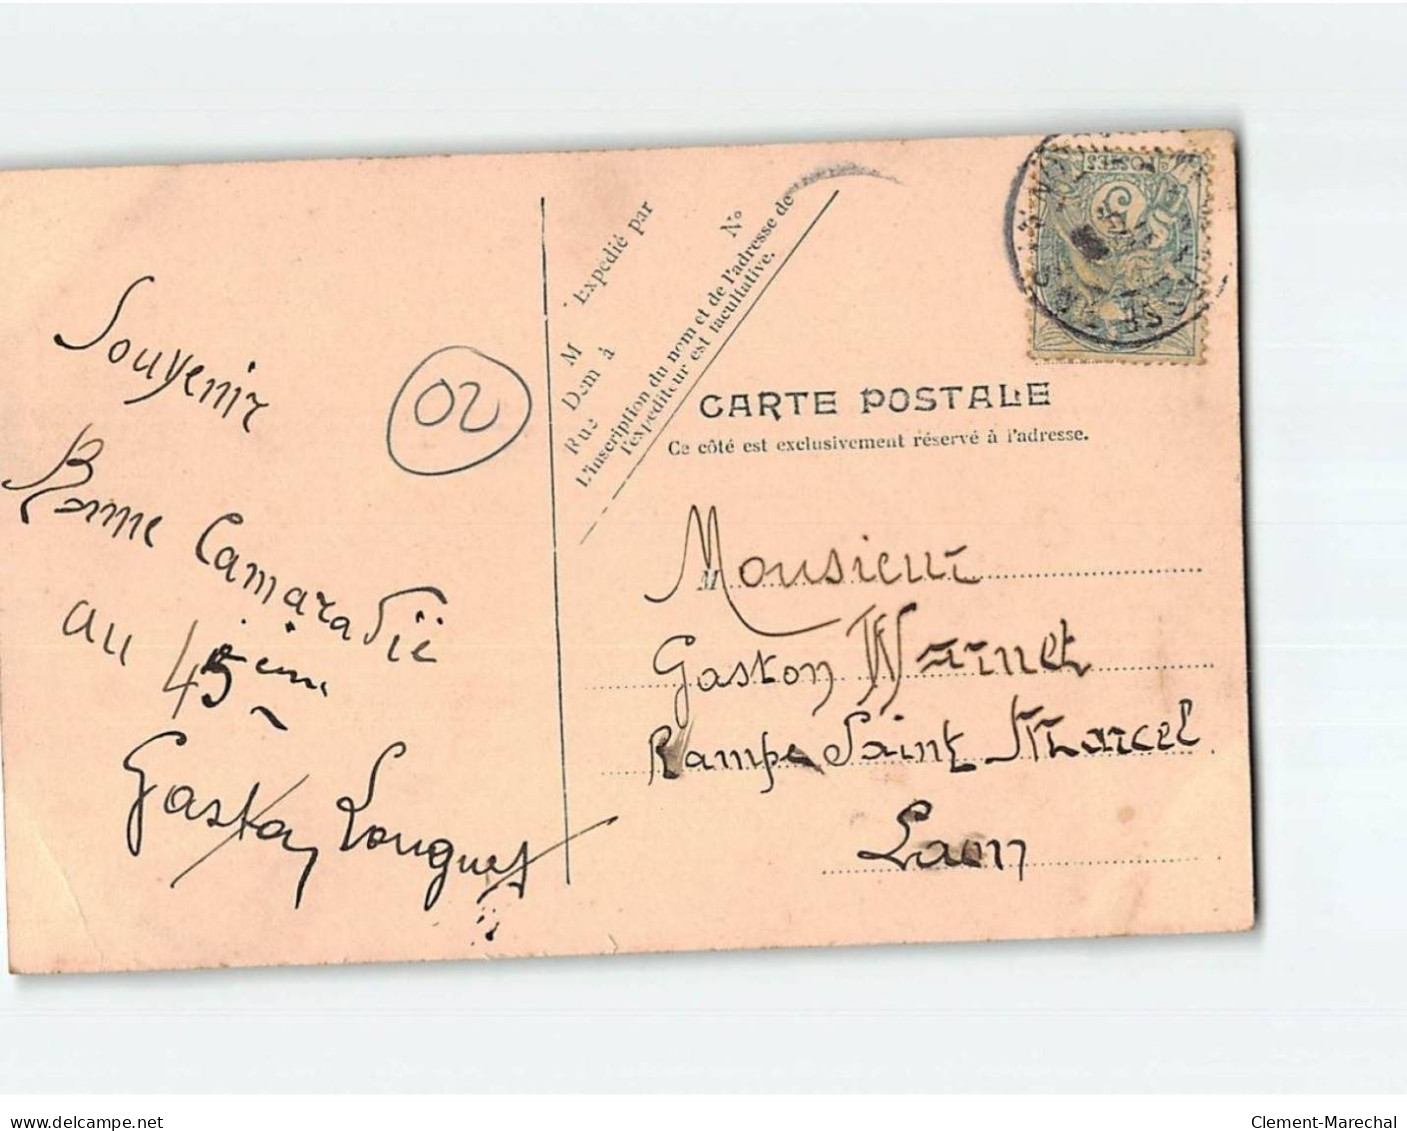 Souvenir
Bonne Camaradie
au 45ème
Gaston Longuet
02
Expédié par
M
Dem à
Rue
N°
L'inscription du nom et de l'adresse de
l'expéditeur est facultative.
POSTES
CARTE POSTALE
Ce côté est exclusivement réservé à l'adresse.
M
Monsieur
Gaston Warnet
Rampe Saint Marcel
Laon
delcampe.net
Clement-Marechal